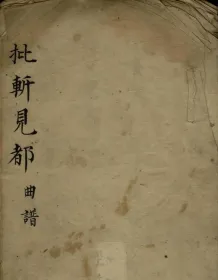 批斬見都 曲譜